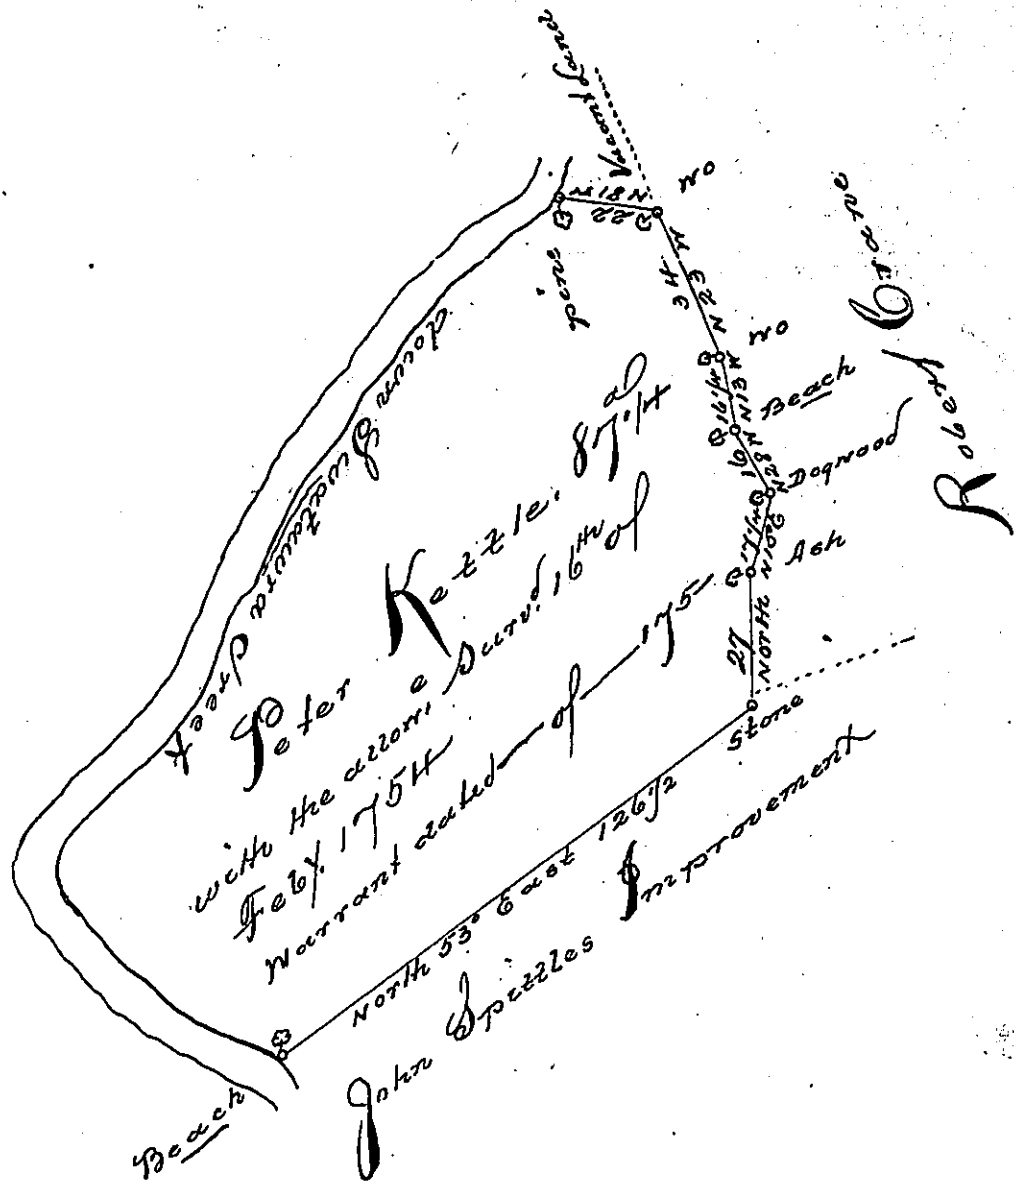 Vacant Land
N 81 W
22
pine
WO
N 23 W
34
WO
N 13 W
16½
Beach
N 28 W
16
Dogwood
17½
Ash
North
27
Stone
Robert
down Swatawra Creek
Peter Kettle. 87a ¼
with the allow,e Surv,d 16th of
Feby. 1754
Warrant dated — of — 1751
North 53° East 126½
John Spittles Improvement
Beach